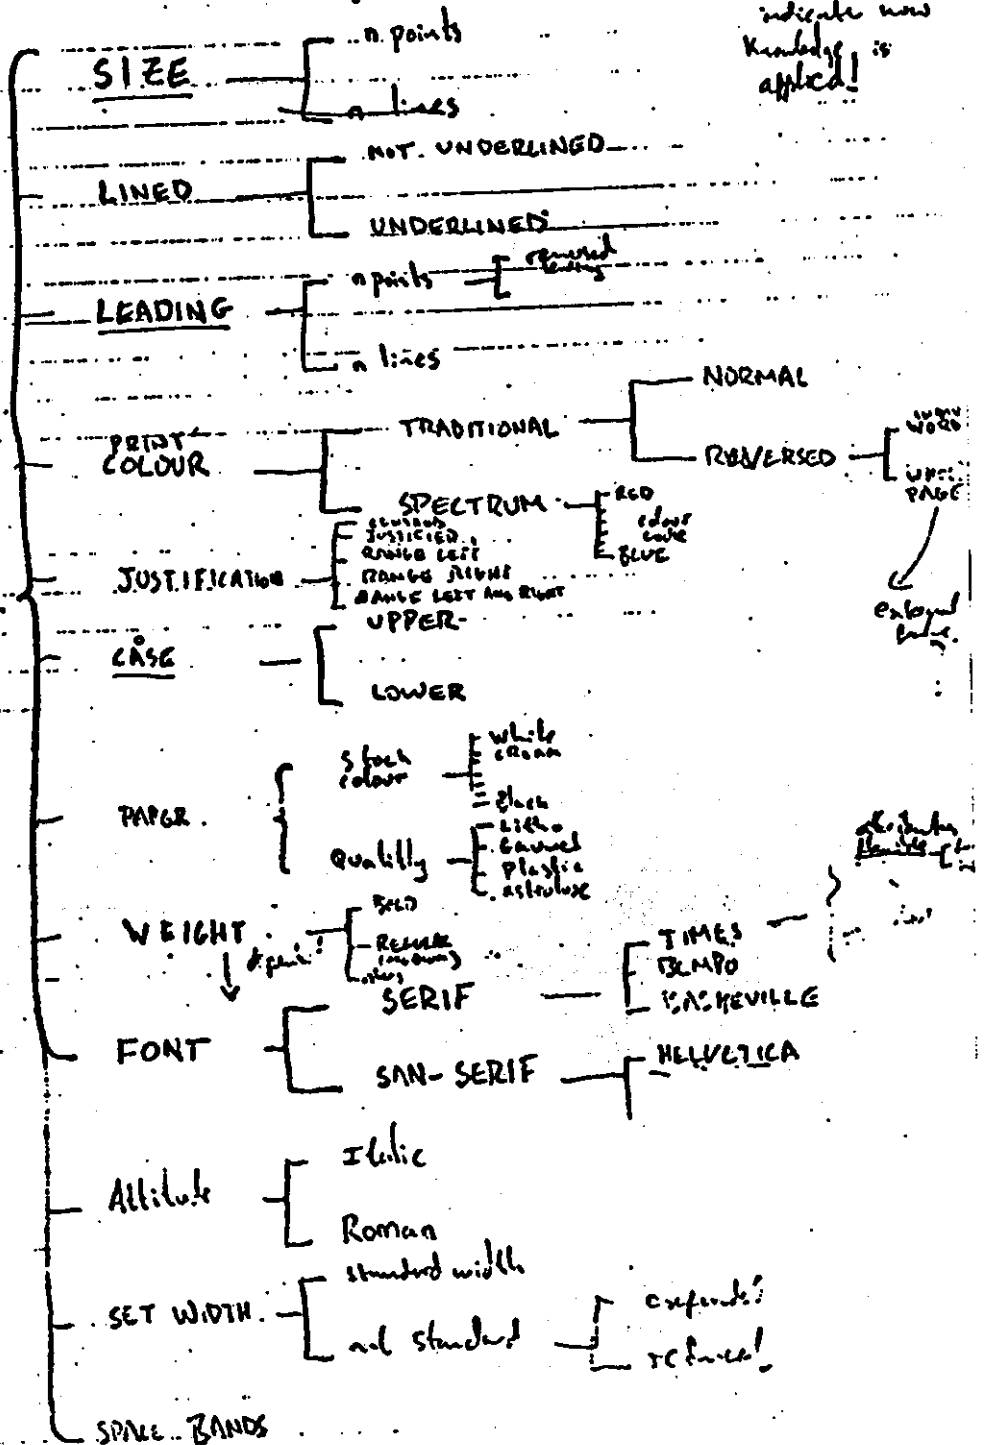 indicate how
Knowledge is
applied!
SIZE
n. points
n lines
LINED
NOT. UNDERLINED
UNDERLINED
LEADING
n points
reversed
leading
n lines
PRINT
COLOUR
TRADITIONAL
NORMAL
REVERSED
WORD
PAGE
SPECTRUM
RED
colour
code
BLUE
external
JUSTIFICATION
JUSTIFIED
RANGE LEFT
RANGE RIGHT
RANGE LEFT AND RIGHT
CASE
UPPER
LOWER
PAPER.
Stock
colour
white
cream
black
Quality
Litho
plastic
WEIGHT
BOLD
REGULAR
(medium)
FONT
SERIF
TIMES
BEMPO
BASKEVILLE
attributes
SAN-SERIF
HELVETICA
Attitude
Italic
Roman
SET WIDTH.
standard width
not standard
SPACE BANDS